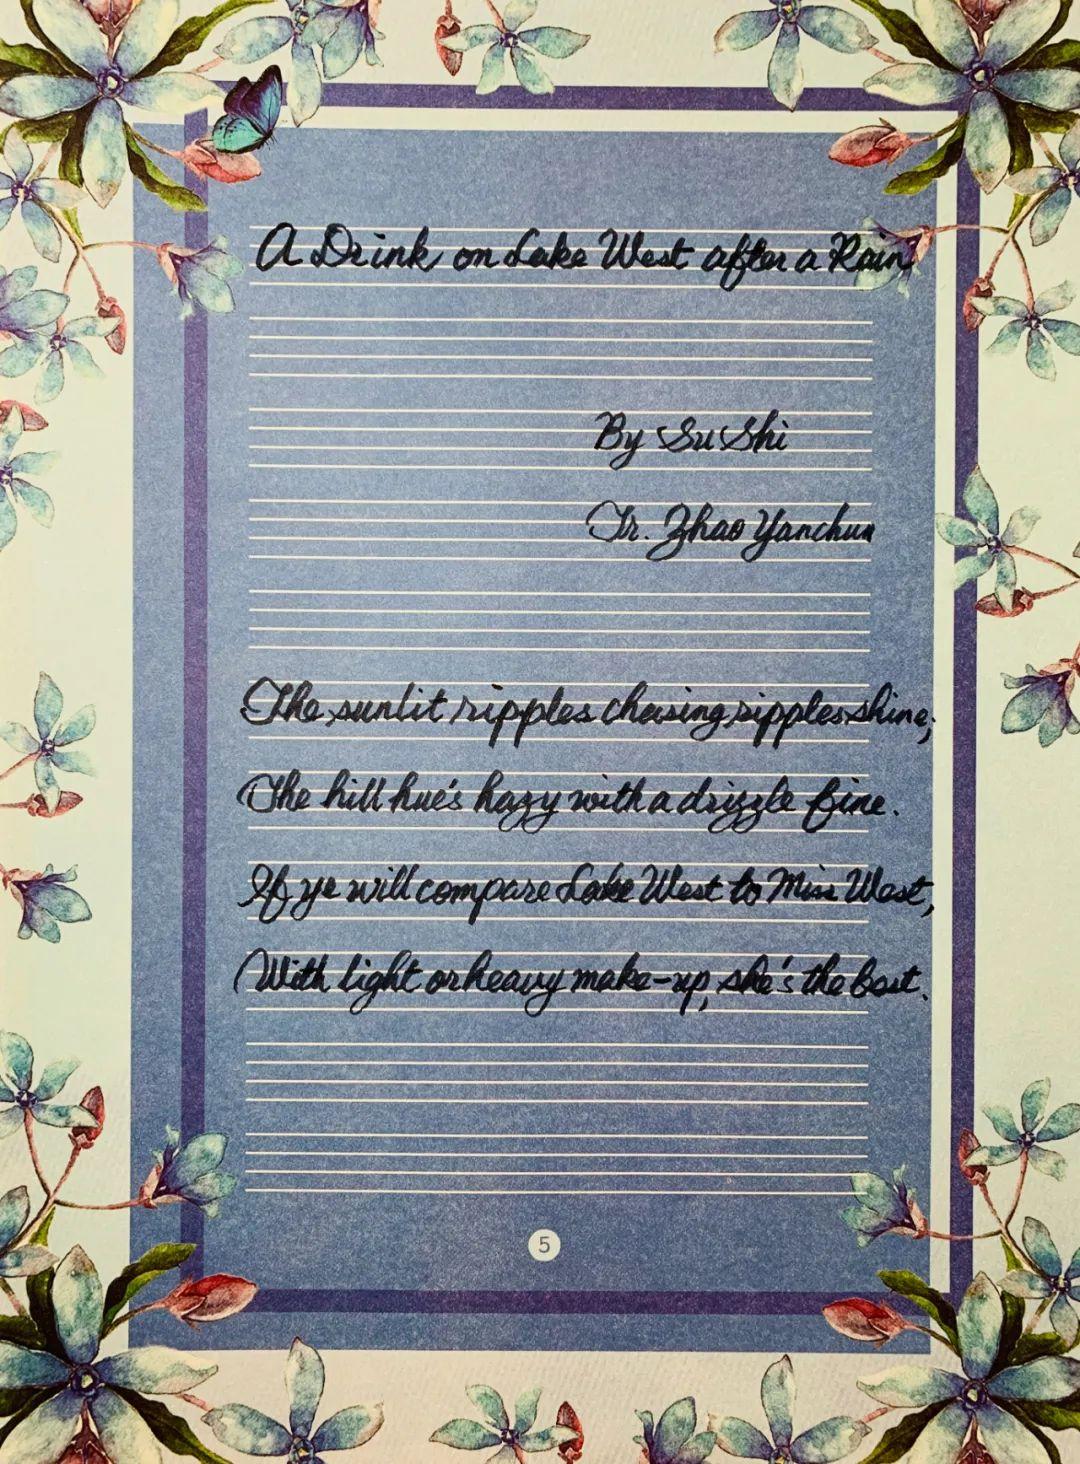 A Drink on Lake West after a Rain
By Su Shi
Tr. Zhao Yanchun
The sunlit ripples chasing ripples shine;
The hill hue's hazy with a drizzle fine.
If ye will compare Lake West to Miss West,
With light or heavy make-up, she's the best.
5